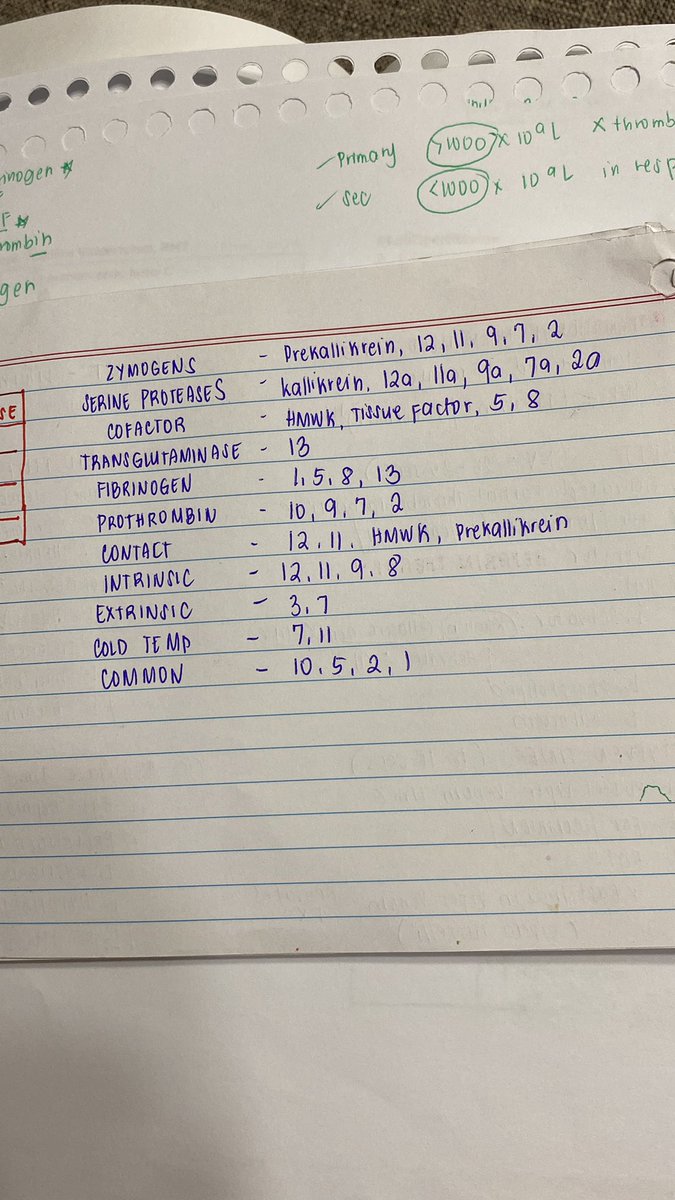 ✓ Primary >1000 × 10⁹ L × thromb
✓ sec <1000 × 10⁹ L in resp
inogen *
F *
rombin
gen
SE
ZYMOGENS - Prekallikrein, 12, 11, 9, 7, 2
SERINE PROTEASES - kallikrein, 12a, 11a, 9a, 7a, 2a
COFACTOR - HMWK, Tissue Factor, 5, 8
TRANSGLUTAMINASE - 13
FIBRINOGEN - 1, 5, 8, 13
PROTHROMBIN - 10, 9, 7, 2
CONTACT - 12, 11, HMWK, Prekallikrein
INTRINSIC - 12, 11, 9, 8
EXTRINSIC - 3, 7
COLD TEMP - 7, 11
COMMON - 10, 5, 2, 1